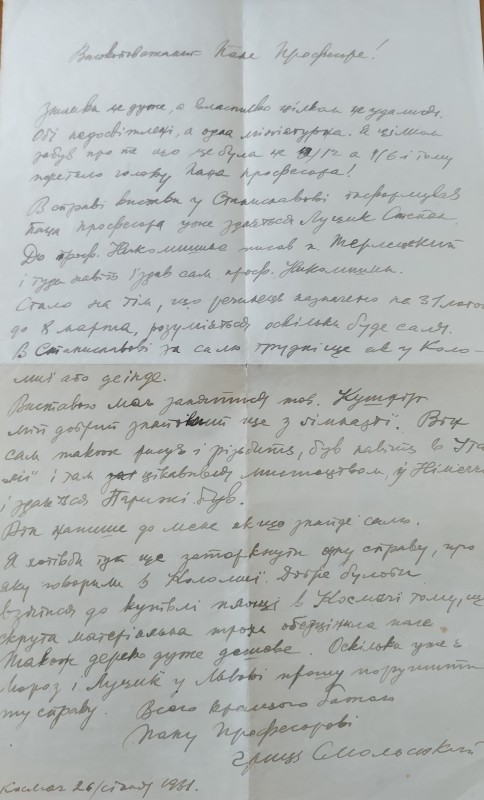 Високоповажаний Пане Професоре!
Знимки не дуже, а властиво цілком не удалися.
Обі недосвітлені, а одна мініятурка. Я цілком
забув про те що це була не 9/12 а 9/6 і тому
перетяло голову Пана Професора!
В справі вистави у Станиславові інформував
Пана професора уже здається Луцик Степан.
До проф. писав п. Терлецький
і туди навіть їздив сам проф.
Стало на тім, що речинець назначено на 31 лютого
до 8 марта, розуміється оскільки буде саля.
В Станиславові за салю трудніще як у Коло-
миї або деінде.
Виставою має занятися тов.
мій добрий знакомий ще з гімназії. Він
сам також рисує і різьбить, був навіть в Іта-
лії і там цікавився мистецтвом, у Німеччині
і здається Парижі був.
Він напише до мене якщо знайде салю.
Я хотівби тут ще заторкнути одну справу, про
яку говорили в Коломиї. Добре булоби
взятися до купівлі площі в Космачі тому, що
скрута матеріяльна трохи обсцінила поле.
Також дерево дуже дешеве. Оскільки уже є
Мороз і Луцик у Львові прошу порушити
ту справу. Всего кращого бажаю
Пану Професорові
Гриць Смольський
Космач 26/січня 1931.